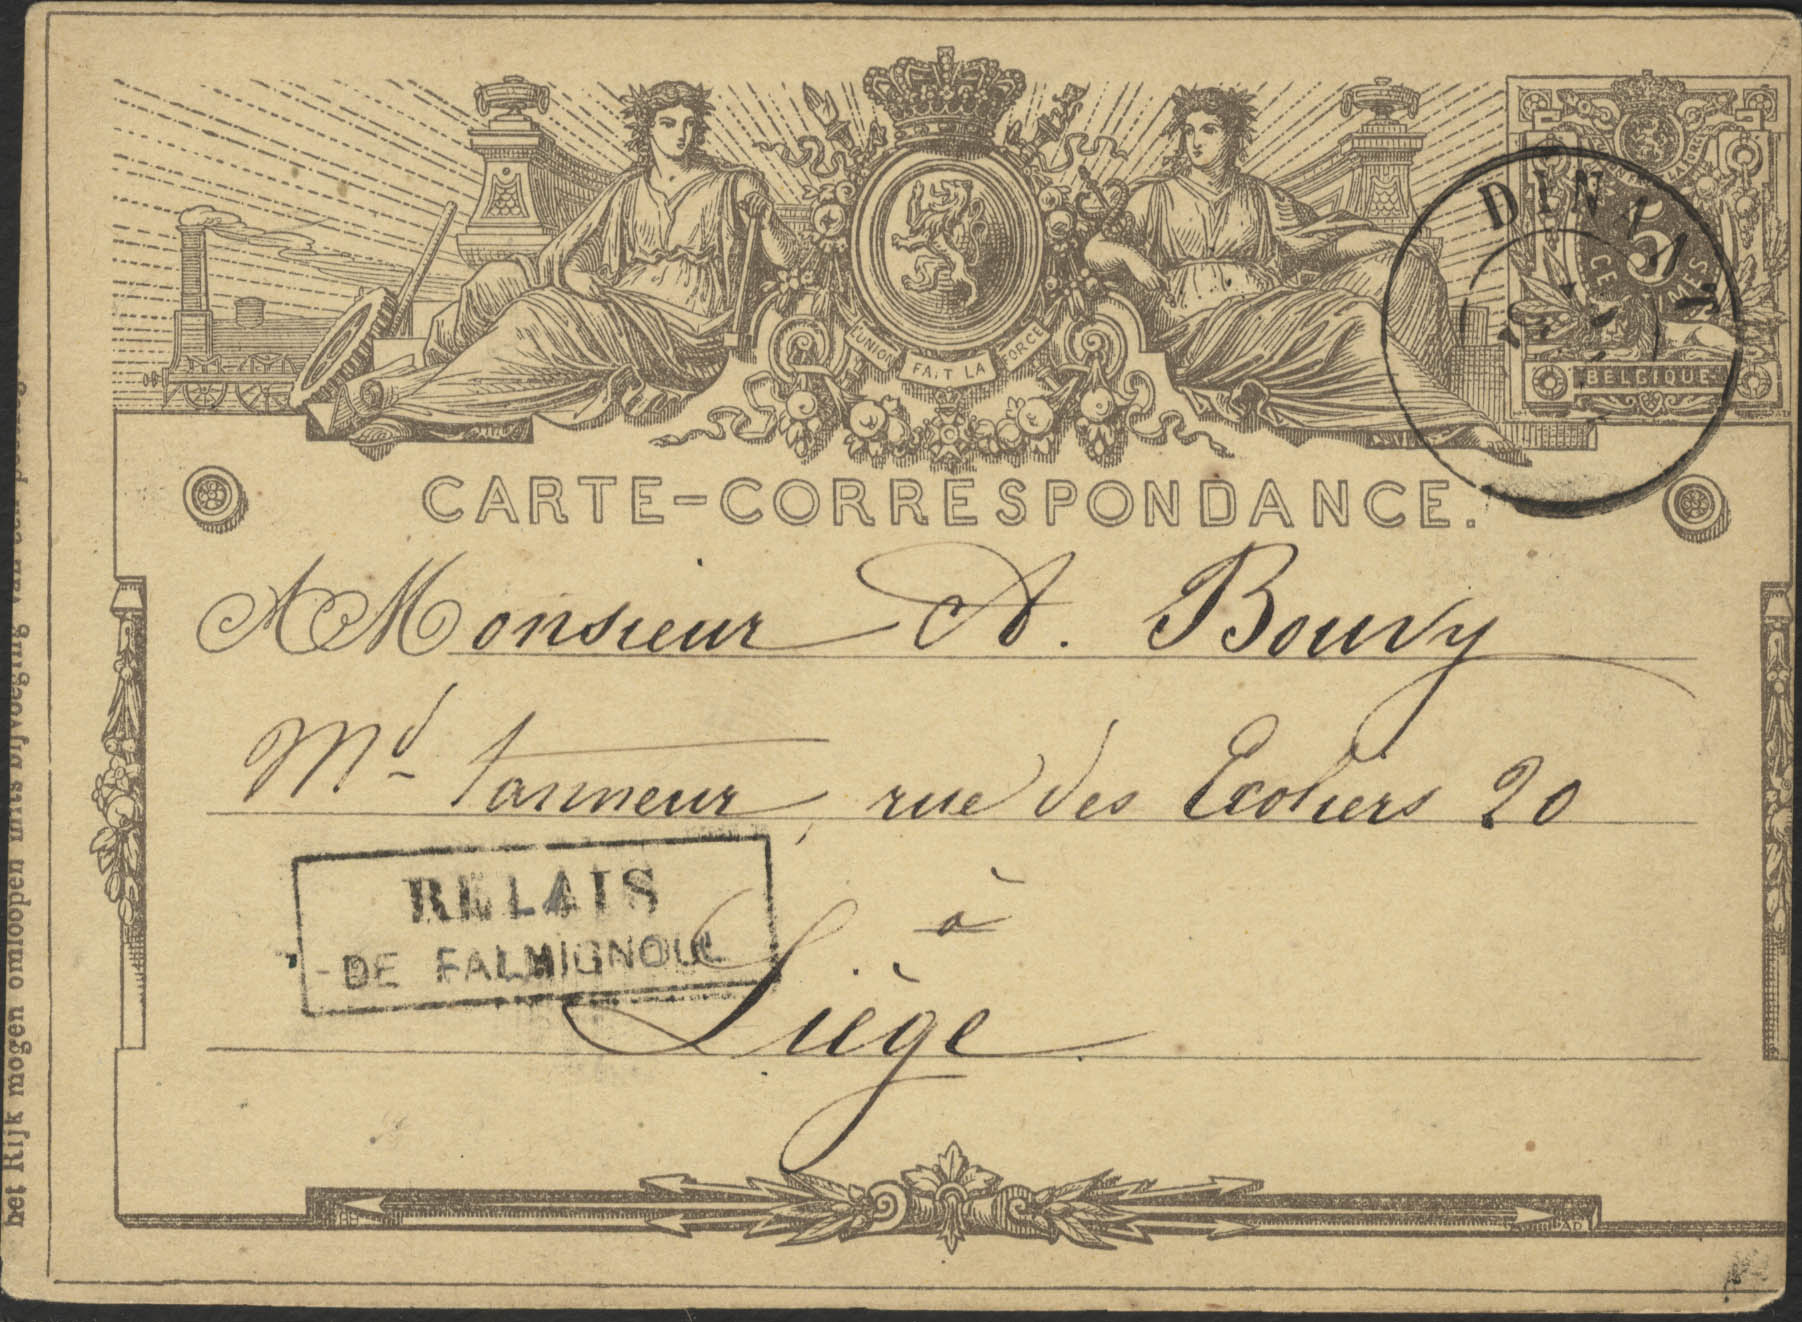 L'UNION FAIT LA FORCE
DINANT
5
CE MES
BELGIQUE
CARTE-CORRESPONDANCE.
A Monsieur A. Bouvy
Md tanneur, rue des Ecoliers 20
à
Liège
RELAIS
DE FALMIGNOUL
het Rijk mogen omloopen mits bijvoeging van een